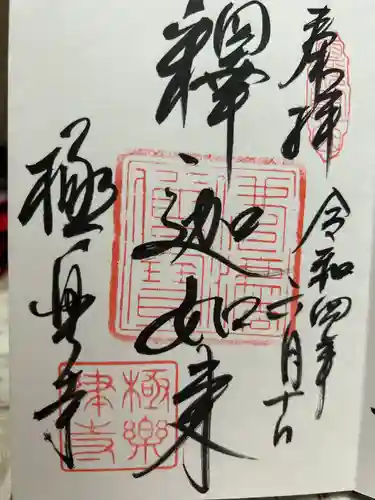 奉拝
令和四年
六月十日
釋迦如来
極楽寺
極樂
律寺